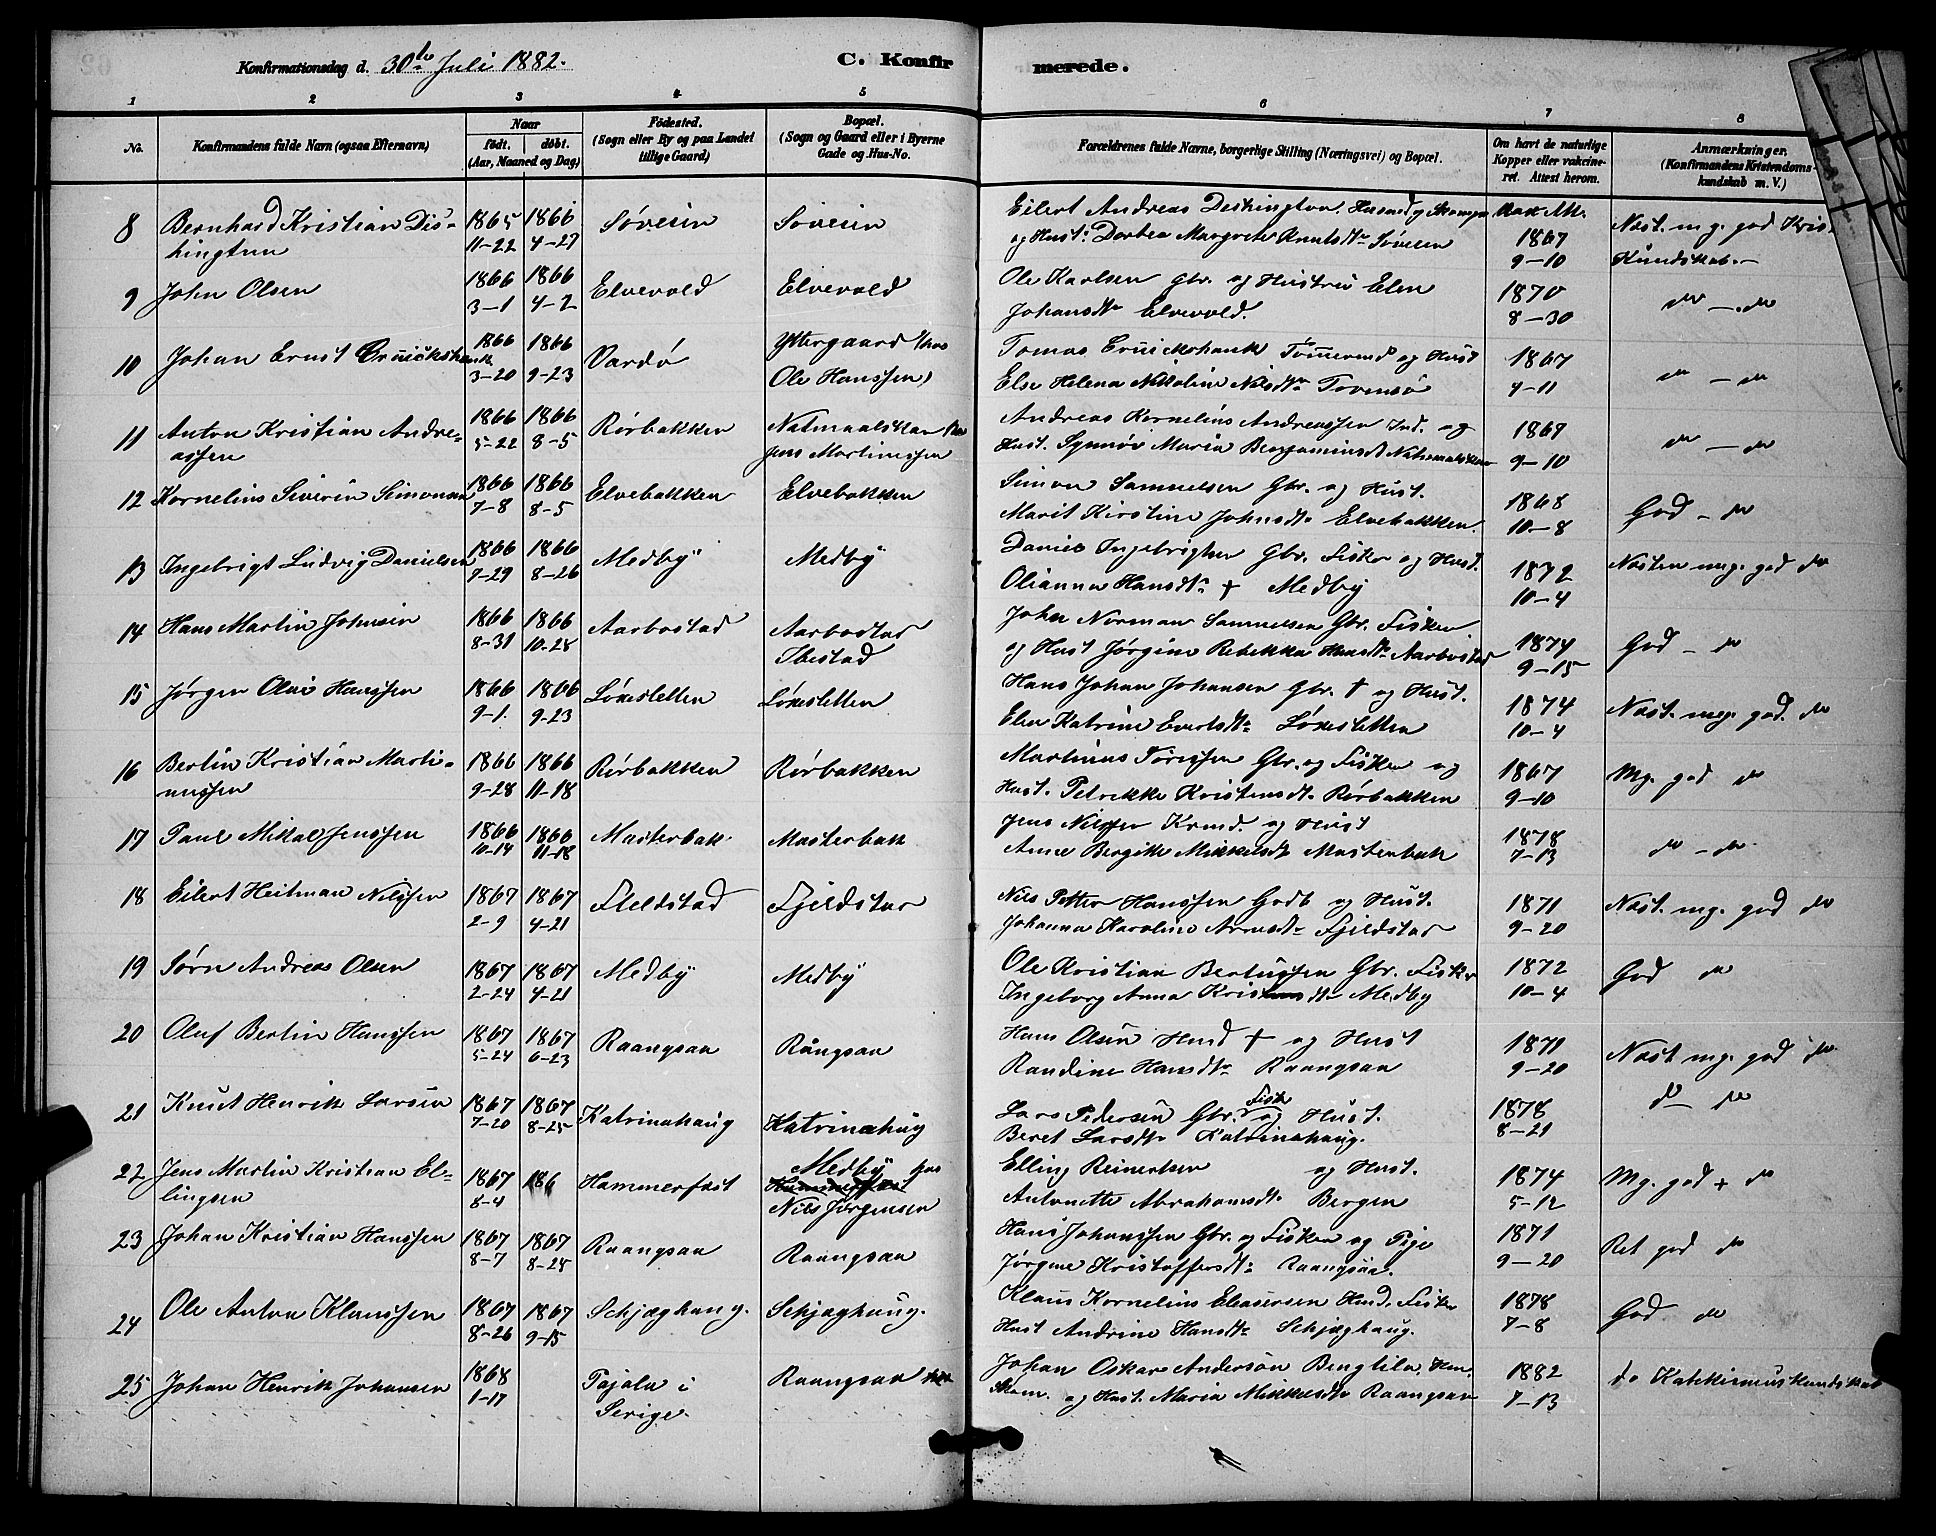 Konfirmationsdag d. 30te Juli 1882.
C. Konfirmerede.
1 2 3 4 5 6 7 8
No.
Konfirmandens fulde Navn (ogsaa Efternavn)
Naar
født. døbt.
(Aar, Maaned og Dag)
Fødested.
(Sogn eller By og paa Landet
tillige Gaard)
Bopæl.
(Sogn og Gaard eller i Byerne
Gade og Hus-No.
Forældrenes fulde Navne, borgerlige Stilling (Næringsvei) og Bopæl.
Om havt de naturlige
Kopper eller vakcine-
ret. Attest herom.
Anmærkninger.
(Konfirmandens Kristendoms-
kundskab m. V.)
8 Bernhard Kristian Dis- 1865 1866 Søveien Søveien Eilert Andreas Deshington. Husmd og
hington 11-22 4-27 og Hust: Dorthea Margrete Knutsdtr Søveien 1867 9-10 Næst. mg. god Kris.
Kundskab.
9 John Olsen 1866 1866 Elvevold Elvevold Ole Karlsen Gbr. og Hustru Elen 1870
3-1 4-2 Johansdtr Elvevold. 8-30 do - do
10 Johan Ernst Cruickshank 1866 1866 Vardø Yttergaard (hos Tomas Cruickshank Tømmermd og Hust 1867
3-20 9-23 Ole Hanssen) Else Helena Nikoline Nilsdtr Tromsø 4-11 do - do
11 Anton Kristian Andre- 1866 1866 Rørbakken Natmaalshau (hos Andreas Kornelius Andreassen Ind. og 1869
assen 5-22 8-5 Jens Martinssen Hust. Synnøv Maria Benjaminsdt 9-10 do - do
12 Kornelius Siverin Simonsen 1866 1866 Elvebakken Elvebakken Simon Samuelsen Gbr. og Hust. 1868
7-8 8-5 Marit Kirstine Johnsdtr Elvebakken. 10-8 God - do
13 Ingebrigt Ludvig Danielsen 1866 1866 Medby Medby Daniel Ingebrigtsen Gbr. Fisker og Hust. 1872 Næsten mg. god do
7-29 8-26 Olianna Hansdtr † Medby 10-4
14 Hans Martin Johnsen 1866 1866 Aarbostad Aarbostad John Norman Samuelsen Gbr. Fisker 1874 God - do
8-31 10-28 Ibestad og Hust Jørgine Rebekka Hansdtr Aarbostad 9-15
15 Jørgen Olai Hanssen 1866 1866 Løvesletten Løvesletten Hans Johan Johansen Gbr. † og Hust. 1874 Næst. mg. god. do
9-1. 9-23 Elen Katrine Evertsdtr Løvesletten 10-4
16 Bertin Kristian Marti- 1866 1866 Rørbakken Rørbakken Martinus Tørissen Gbr. og Fisker og 1867 Mg. god do
nussen 9-28 11-18 Hust. Petrikke Kristensdtr Rørbakken 9-10
17 Paul Mikal Jenssen 1866 1866 Masterbak Masterbak Jens Nilssen Husmd. og Hust 1878
10-14 11-18 Anne Bergitte Mikkelsdtr Masterbak 7-13 do - do
18 Eilert Heitman Nilssen 1867 1867 Fjeldstad Fjeldstad Nils Petter Hanssen Gbr og Hust. 1871 Næst. mg. god do
2-9 4-21 Johanna Karoline Arnesdtr Fjeldstad 9-20
19 Sørn Andreas Olsen 1867 1867 Medby Medby Ole Kristian Bertussen Gbr. Fisker 1872 God do
2-24 4-21 Ingeborg Anna Medby 10-4
20 Oluf Bertin Hanssen 1867 1867 Raangsaa Rångsaa Hans Olsen Husmd † og Hust 1871 Næst mg. god do
5-24 6-23 Randine Hansdtr Raangsaa 9-20
21 Knut Henrik Larsen 1867 1867 Katrinahaug Katrinahaug Lars Pedersen Gbr. Fisk og Hust. 1878 do - do
7-20 8-25 Beret Larsdtr Katrinahaug. 8-21
22 Jens Martin Kristian El- 1867 186 Hammerfest Medby hos Elling Reinertsen og Hust. 1874 Mg. god + do
lingsen 8-4 Hammerfest Antonette Abrahamsdtr Bergen 5-12
Nils Jørgensen
23 Johan Kristian Hanssen 1867 1867 Raangsaa Raangsaa Hans Johanssen Gbr. og Fisker og Pige 1871 Ret god do
8-7 8-25 Jørgine Kristoffersdtr Raangsaa. 9-20
24 Ole Anton Klaussen 1867 1867 Schjæghaug. Schjæghaug. Klaus Kornelius Eleasersen Husmd. Fisker 1878 God do
8-26 9-15 Hust Andrine Hansdtr Schjæghaug. 7-8
25 Johan Henrik Johansen 1868 Pajala i Raangsaa Johan Oskar Anderson 1882 do Katekismuskundskab
1-17 Serige. og Hust. Maria Mikkelsdtr Raangsaa 7-13